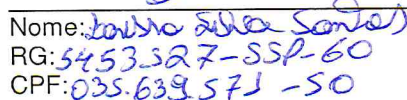 Nome: Larissa Silva Santos
RG: 5453527-SSP-GO
CPF: 035.639.571-50